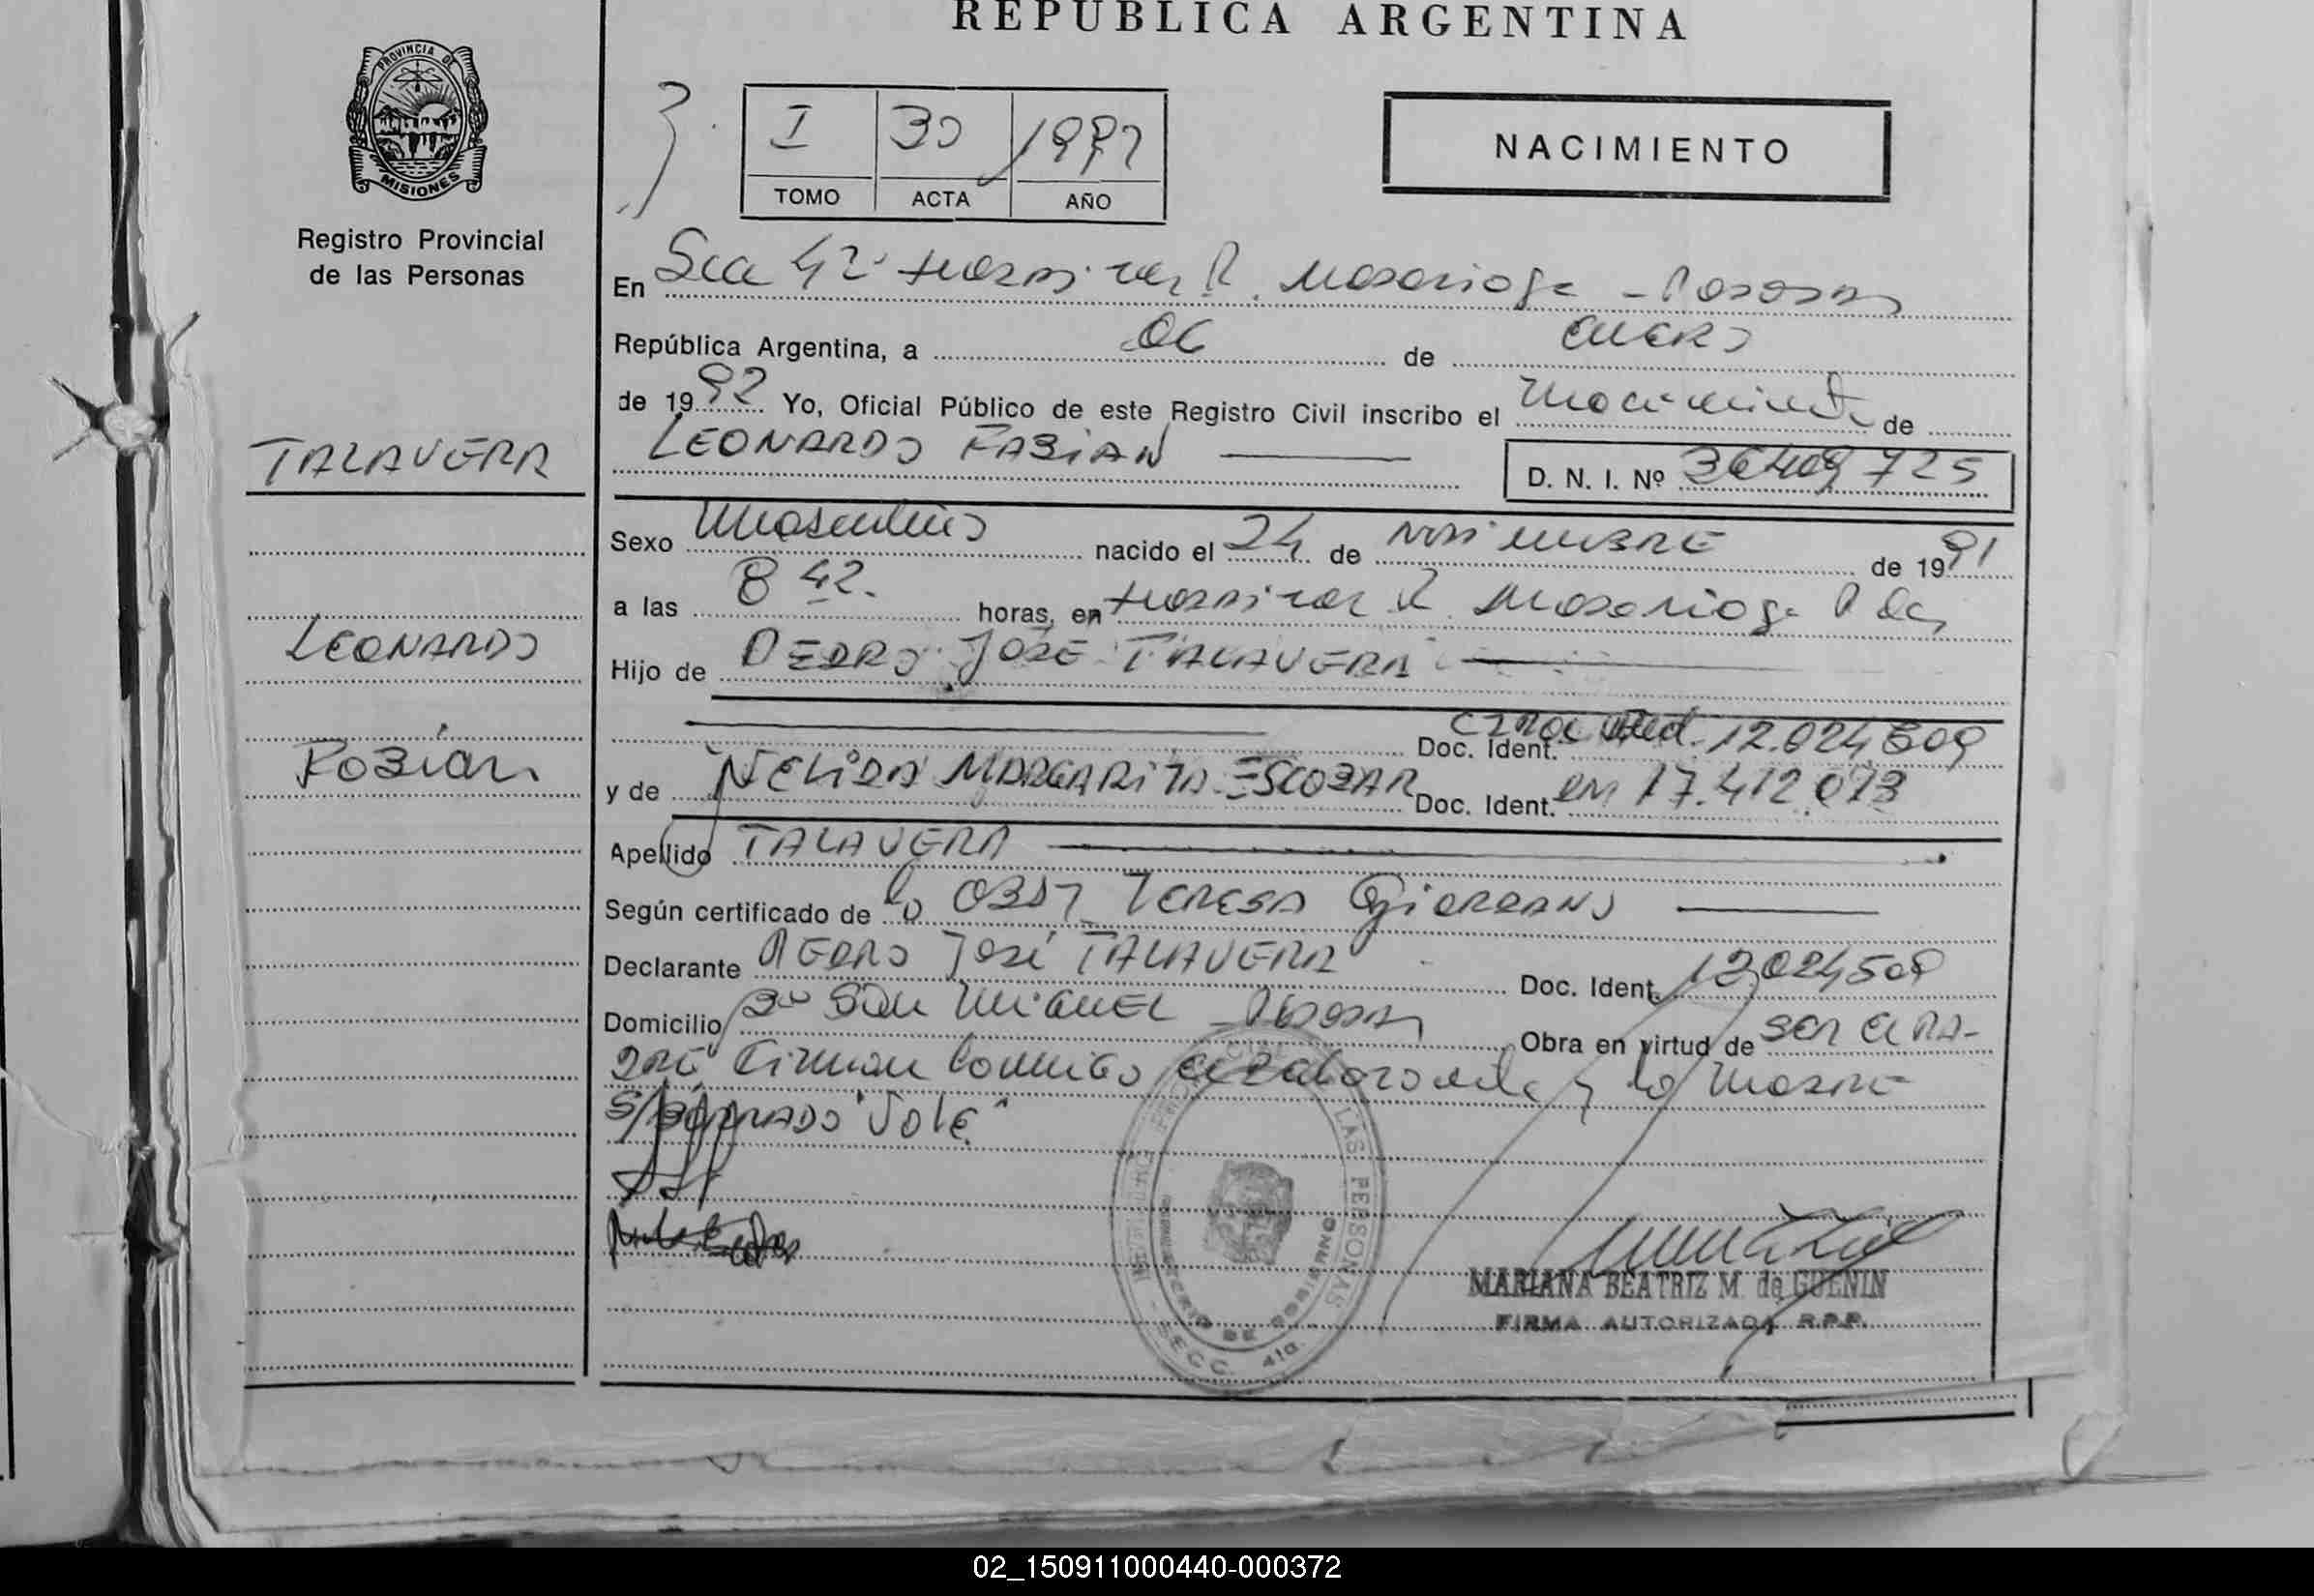 REPUBLICA ARGENTINA
PROVINCIA DE
MISIONES
Registro Provincial
de las Personas
I 30 1992
TOMO ACTA AÑO
NACIMIENTO
En Sec 42 Hospital R. Madariaga - Posadas
República Argentina, a 06 de enero
de 1992 Yo, Oficial Público de este Registro Civil inscribo el Nacimiento de
TALAVERA
LEONARDO FABIAN
D. N. I. Nº 36409725
Sexo Masculino nacido el 24 de Noviembre de 1991
a las 8 42. horas, en Hospital R. Madariaga Pdas
LEONARDO
Hijo de PEDRO JOSE TALAVERA
Doc. Ident. 12.024.509
Fabian
y de NELIDA MARGARITA ESCOBAR Doc. Ident. DNI 17.412.073
Apellido TALAVERA
Según certificado de la OBST TERESA Giordano
Declarante PEDRO José TALAVERA Doc. Ident. 12024509
Domicilio Bº San Miguel Posadas Obra en virtud de ser el Pa-
dre Firman conmigo el declarante y la Madre
S/BORRADO "Vale"
LAS PERSONAS
MINISTERIO DE GOBIERNO
SECC. 41a.
MARIANA BEATRIZ M. de GUENIN
FIRMA AUTORIZADA R.P.P.
02_150911000440-000372